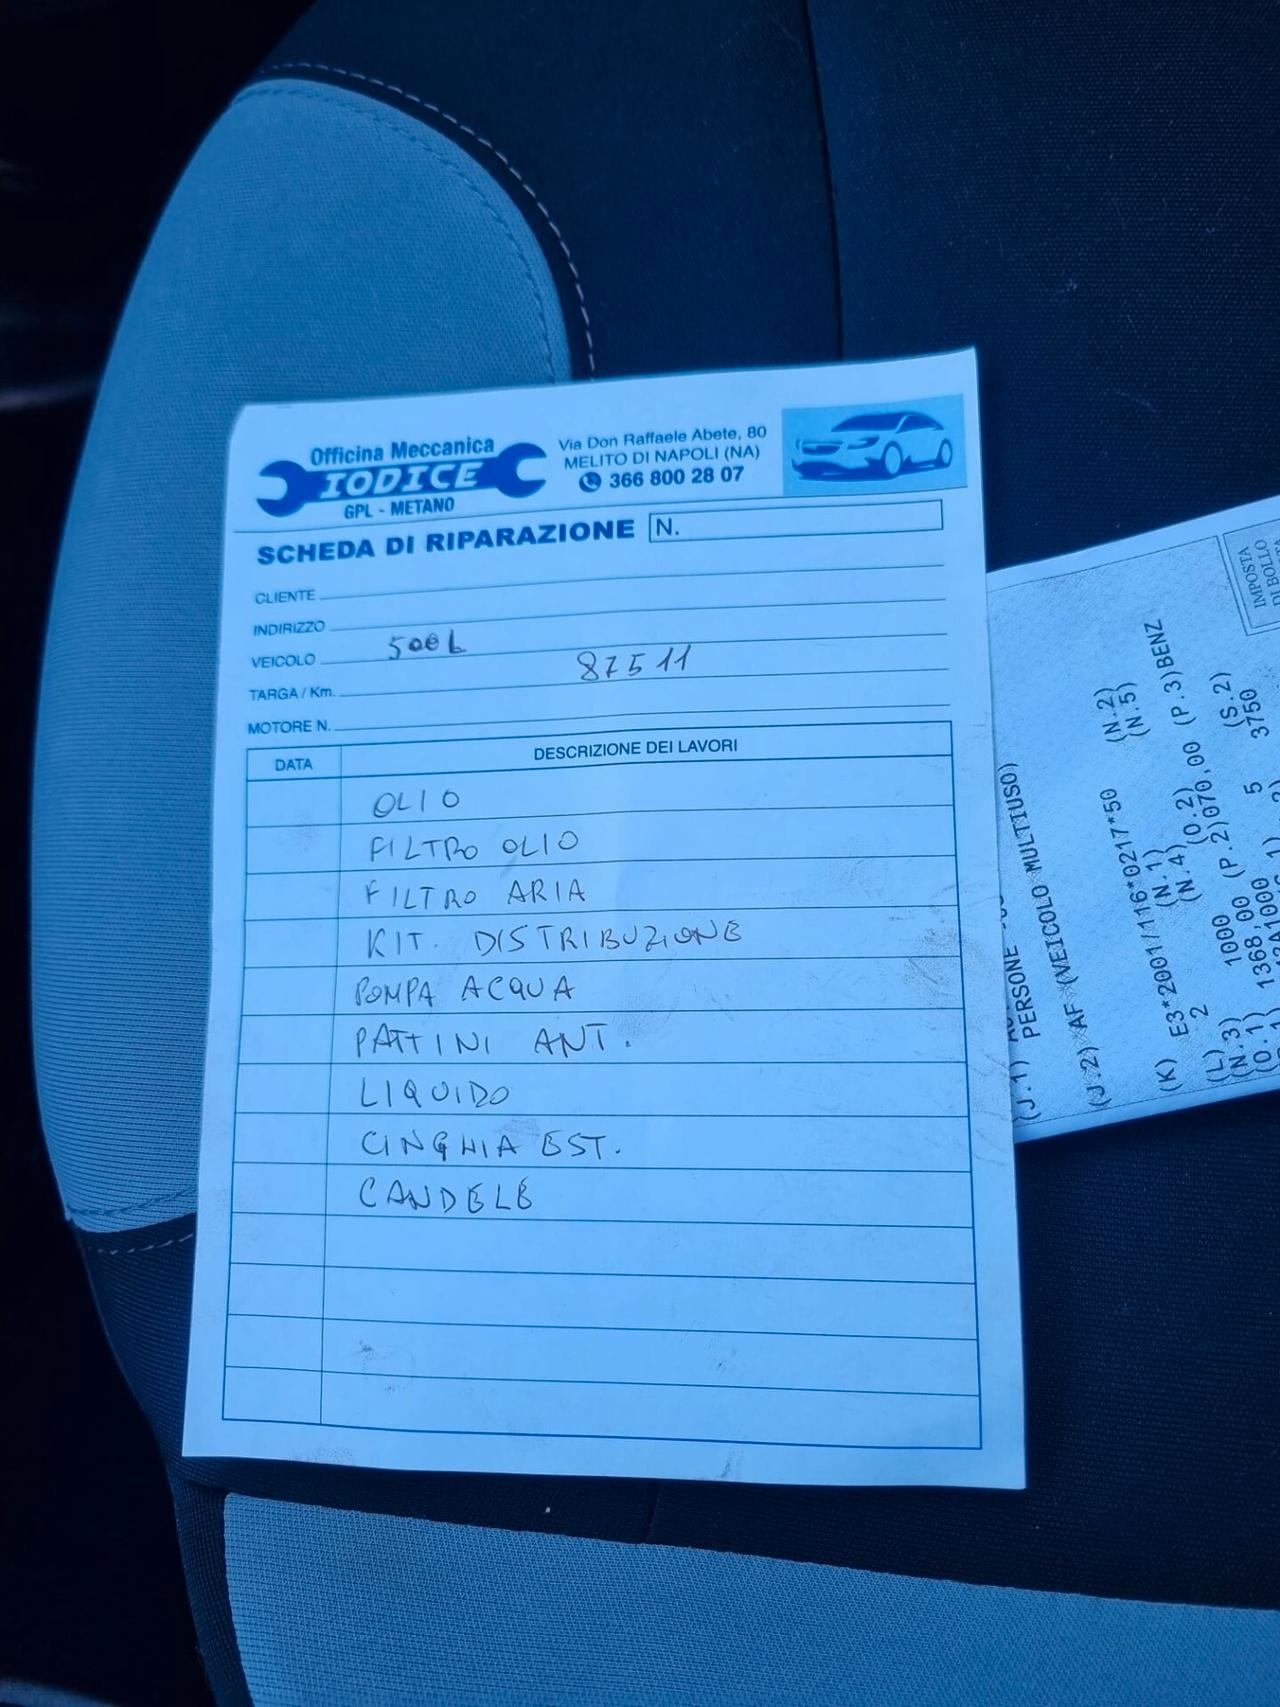 Officina Meccanica
IODICE
GPL - METANO
Via Don Raffaele Abete, 80
MELITO DI NAPOLI (NA)
366 800 28 07
SCHEDA DI RIPARAZIONE N.
CLIENTE
INDIRIZZO
VEICOLO 500L
TARGA / Km. 87511
MOTORE N.
DATA DESCRIZIONE DEI LAVORI
OLIO
FILTRO OLIO
FILTRO ARIA
KIT. DISTRIBUZIONE
POMPA ACQUA
PATTINI ANT.
LIQUIDO
CINGHIA EST.
CANDELE
IMPOSTA
DI BOLLO
(J.1)
PERSONE
(J.2) AF (VEICOLO MULTIUSO)
(K) E3*2001/116*0217*50 (N.2)
(L) 2 (N.1) (N.5)
(N.3) 1000 (N.4) (O.2)
(O.1) 1368,00 (P.2)070,00 (P.3)BENZ
5 (S.2)
3750